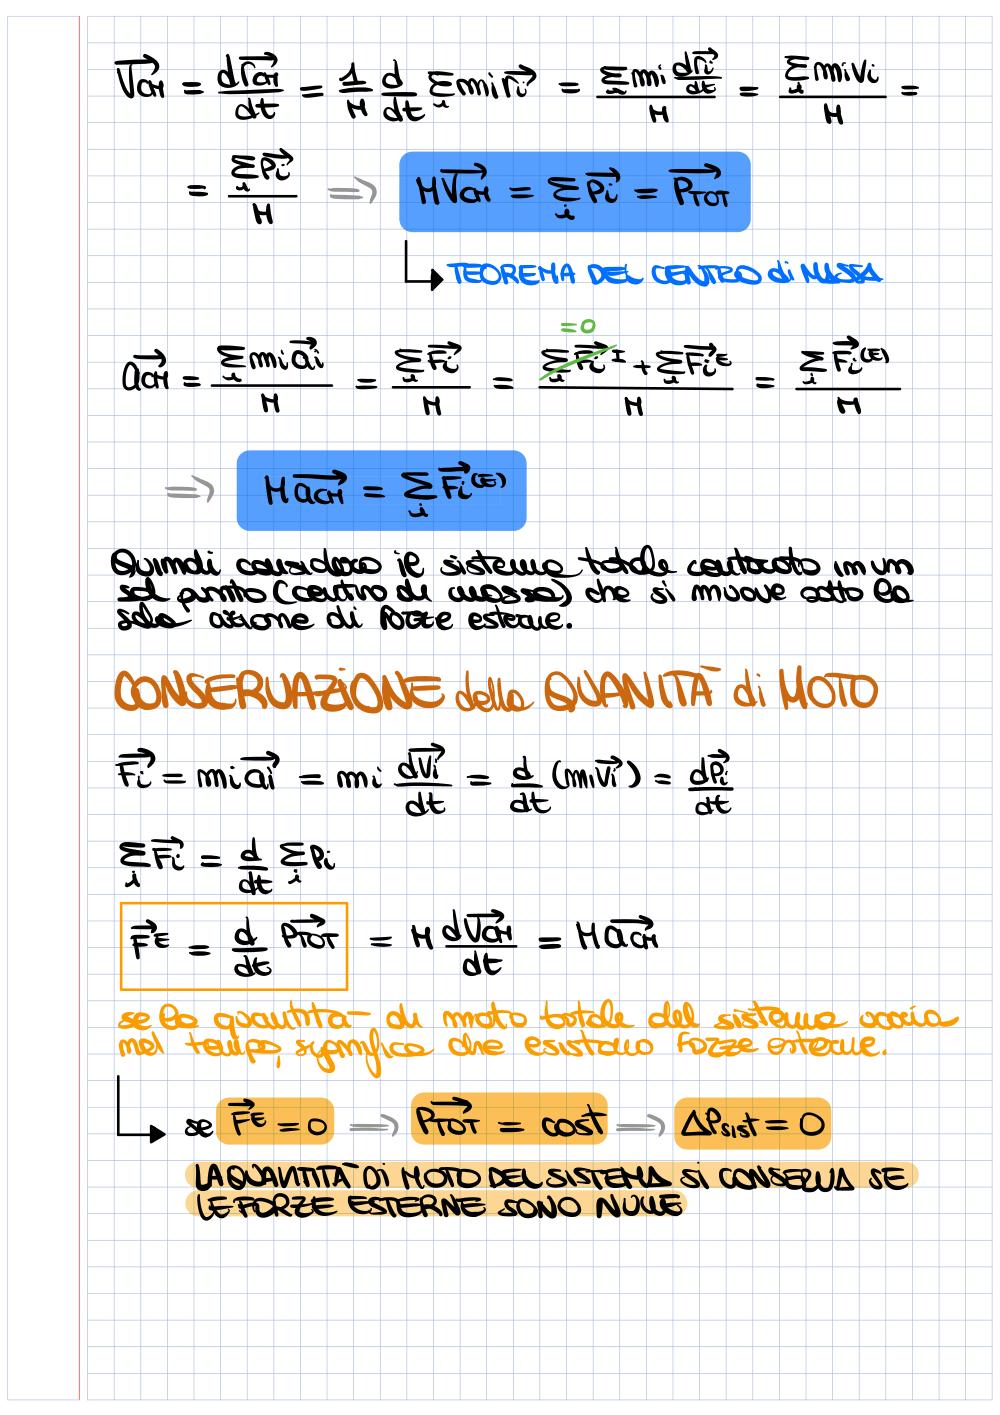 V⃗CM = dr⃗CM/dt = 1/M d/dt Σi mi r⃗i = Σi mi dr⃗i/dt / M = Σi mi vi / M =
= Σi P⃗i / M ⇒ MV⃗CM = Σi P⃗i = P⃗TOT
TEOREMA DEL CENTRO di MASSA
=0
a⃗CM = Σi mi a⃗i / M = Σi F⃗i / M = Σi F⃗i^I + Σi F⃗i^E / M = Σi F⃗i^(E) / M
⇒ M a⃗CM = Σi F⃗i^(E)
Quindi considero il sistema totale contratto in un
sol punto (centro di massa) che si muove sotto la
sola azione di forze esterne.
CONSERVAZIONE della QUANITÀ di MOTO
F⃗i = mi a⃗i = mi dV⃗i/dt = d/dt (mi V⃗i) = dP⃗i/dt
Σi F⃗i = d/dt Σi Pi
F⃗^E = d/dt P⃗TOT = M dV⃗CM/dt = M a⃗CM
se la quantità di moto totale del sistema varia
nel tempo, significa che esistono forze esterne.
se F⃗^E = 0 ⇒ P⃗TOT = cost ⇒ ΔPsist = 0
LA QUANTITÀ DI MOTO DEL SISTEMA SI CONSERVA SE
LE FORZE ESTERNE SONO NULLE